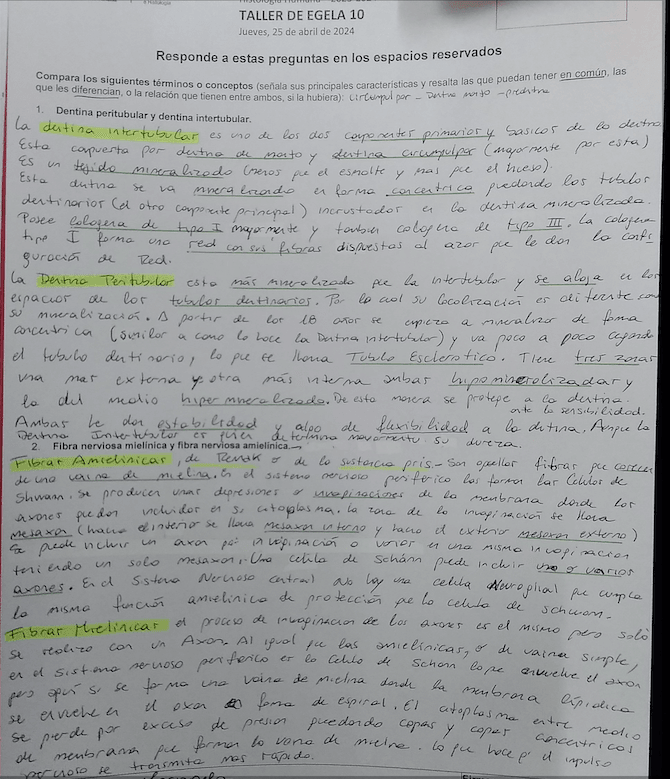 TALLER DE EGELA 10
Jueves, 25 de abril de 2024
Responde a estas preguntas en los espacios reservados
Compara los siguientes términos o conceptos (señala sus principales características y resalta las que puedan tener en común, las
que les diferencian, o la relación que tienen entre ambos, si la hubiera): Circumpulpar - Dentina manto - predentina
1. Dentina peritubular y dentina intertubular.
La dentina intertubular es uno de los dos componentes primarios y basicos de la dentina.
Esta compuesta por dentina de manto y dentina circumpulpar (mayormente por esta)
Es un tejido mineralizado (menos que el esmalte y mas que el hueso).
Esta dentina se va mineralizando en forma concentrica quedando los tubulos
dentinarios (el otro componente principal) incrustados en la dentina mineralizada.
Posee colageno de tipo I mayormente y tambien colageno de tipo III. La colageno
tipo I forma una red con sus fibras dispuestas al azar que le dan la confi
guración de Red.
La Dentina Peritubular esta más mineralizada que la intertubular y se aloja en los
espacios de los tubulos dentinarios. Por lo cual su localización es diferente como
su mineralización. A partir de los 18 años se empieza a mineralizar de forma
concentrica (similar a como lo hace la Dentina intertubular) y va poco a poco cegando
el tubulo dentinario, lo que se llama Tubulo Esclerotico. Tiene tres zonas
una mas externa y otra más interna ambas hipomineralizadas y
la del medio hipermineralizada. De esta manera se protege a la dentina
ante la sensibilidad.
Ambas le dan estabilidad y algo de flexibilidad a la ditina. Aunque la
Dentina Intertubular es quien determina mayormente su dureza.
2. Fibra nerviosa mielínica y fibra nerviosa amielínica.
Fibras Amielinicas, de Remak o de la sustancia gris. - Son aquellas fibras que carecen
de una vaina de mielina. En el sistema nervioso periferico las forma las Celulas de
Shwann. Se producen unas depresiones o invaginaciones de la membrana donde los
axones quedan incluidos en su citoplasma. La zona de la invaginación se llama
mesaxon (hacia el interior se llama mesaxon interno y hacia el exterior mesaxon externo)
Se puede incluir un axon por invaginación o varios en una misma invaginacion
teniendo un solo mesaxon. Una celula de Schänn puede incluir uno o varios
axones. En el Sistema Nervioso Central No hay una celula Neuroglial que cumpla
la misma función amielinica de protección que la celula de Schwann.
Fibras Mielinicas el proceso de invaginacion de los axones es el mismo pero solo
se realiza con un Axon. Al igual que las amielinicas, o de vaina simple,
en el sistema nervioso periferico es la celula de Schann la que envuelve el axon
pero aquí si se forma una vaina de mielina donde la membrana lipidica
se envuelve en el axon en forma de espiral. El citoplasma entre medio
se pierde por exceso de presion quedando capas y capas concentricas
de membrana que forman la vaina de mielina. Lo que hace q' el impulso
nervioso se transmita mas rapido.